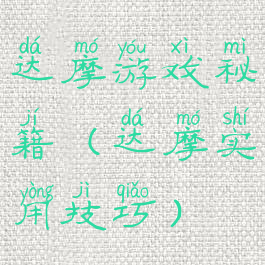 dá mó yóu xì mì
达摩游戏秘
jí dá mó shí
籍(达摩实
yòng jì qiǎo
用技巧)